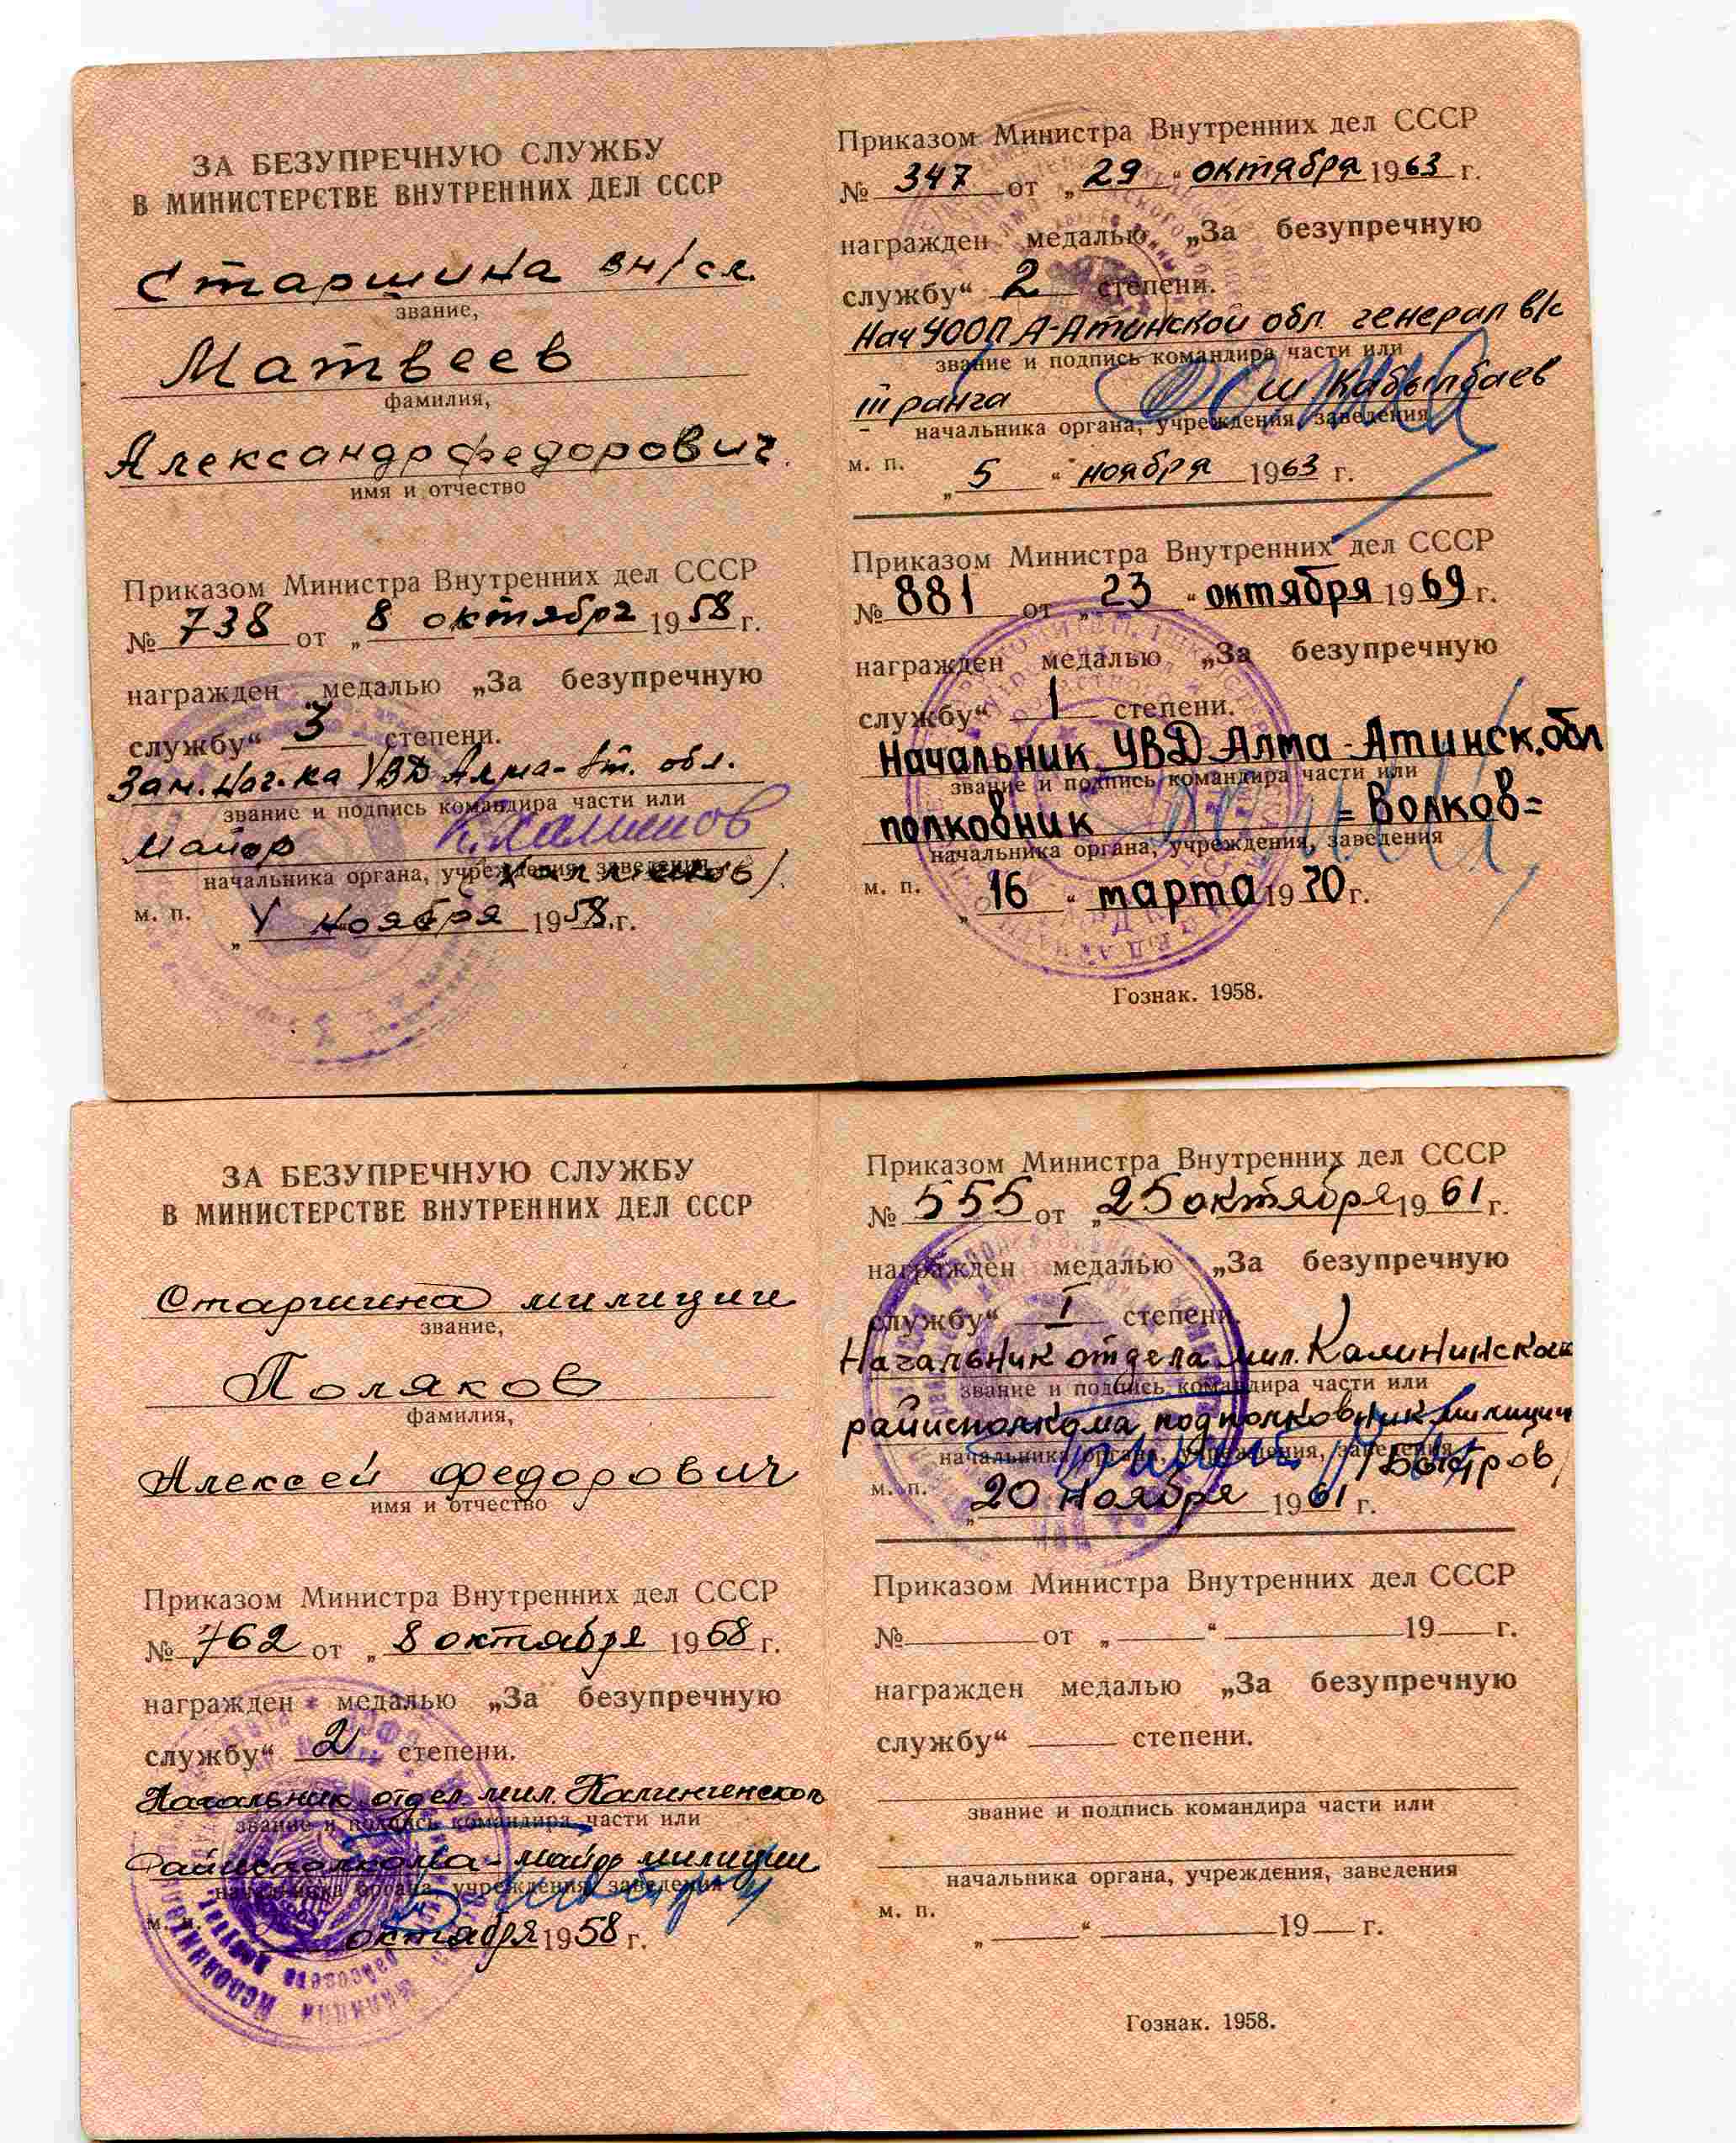 ЗА БЕЗУПРЕЧНУЮ СЛУЖБУ
В МИНИСТЕРСТВЕ ВНУТРЕННИХ ДЕЛ СССР
Старшина вн/сл.
звание,
Матвеев
фамилия,
Александр Федорович.
имя и отчество
Приказом Министра Внутренних дел СССР
№ 738 от „8 октября 1958 г.
награжден медалью „За безупречную
службу“ 3 степени.
Зам. Нач-ка УВД Алма-Ат. обл.
звание и подпись командира части или
майор
начальника органа, учреждения, заведения
м. п.
„ V ноября 1958 г.
Приказом Министра Внутренних дел СССР
№ 347 от „29“ октября 1963 г.
награжден медалью „За безупречную
службу“ 2 степени.
Нач УООП А-Атинской обл. генерал в/с
звание и подпись командира части или
III ранга Ш Кабылбаев
начальника органа, учреждения, заведения
м. п.
„5“ ноября 1963 г.
Приказом Министра Внутренних дел СССР
№ 881 от „23“ октября 1969 г.
награжден медалью „За безупречную
службу“ 1 степени.
Начальник УВД Алма-Атинск.обл
звание и подпись командира части или
полковник =Волков=
начальника органа, учреждения, заведения
м. п.
„16“ марта 1970 г.
Гознак. 1958.
ЗА БЕЗУПРЕЧНУЮ СЛУЖБУ
В МИНИСТЕРСТВЕ ВНУТРЕННИХ ДЕЛ СССР
Старшина милиции
звание,
Поляков
фамилия,
Алексей Федорович
имя и отчество
Приказом Министра Внутренних дел СССР
№ 762 от „8 октября 1958 г.
награжден медалью „За безупречную
службу“ 2 степени.
Начальник отдел. мил. Калининского
звание и подпись командира части или
Райисполкома - майор милиции
начальника органа, учреждения, заведения
м. п.
октября 1958 г.
Приказом Министра Внутренних дел СССР
№ 555 от „25 октября 1961 г.
награжден медалью „За безупречную
службу“ I степени.
Начальник отдела мил. Калининского
звание и подпись командира части или
райисполкома подполковник милиции
начальника органа, учреждения, заведения
м. п.
„20 ноября 1961 г.
Приказом Министра Внутренних дел СССР
№ от „ “ 19 г.
награжден медалью „За безупречную
службу“ степени.
звание и подпись командира части или
начальника органа, учреждения, заведения
м. п.
„ “ 19 г.
Гознак. 1958.